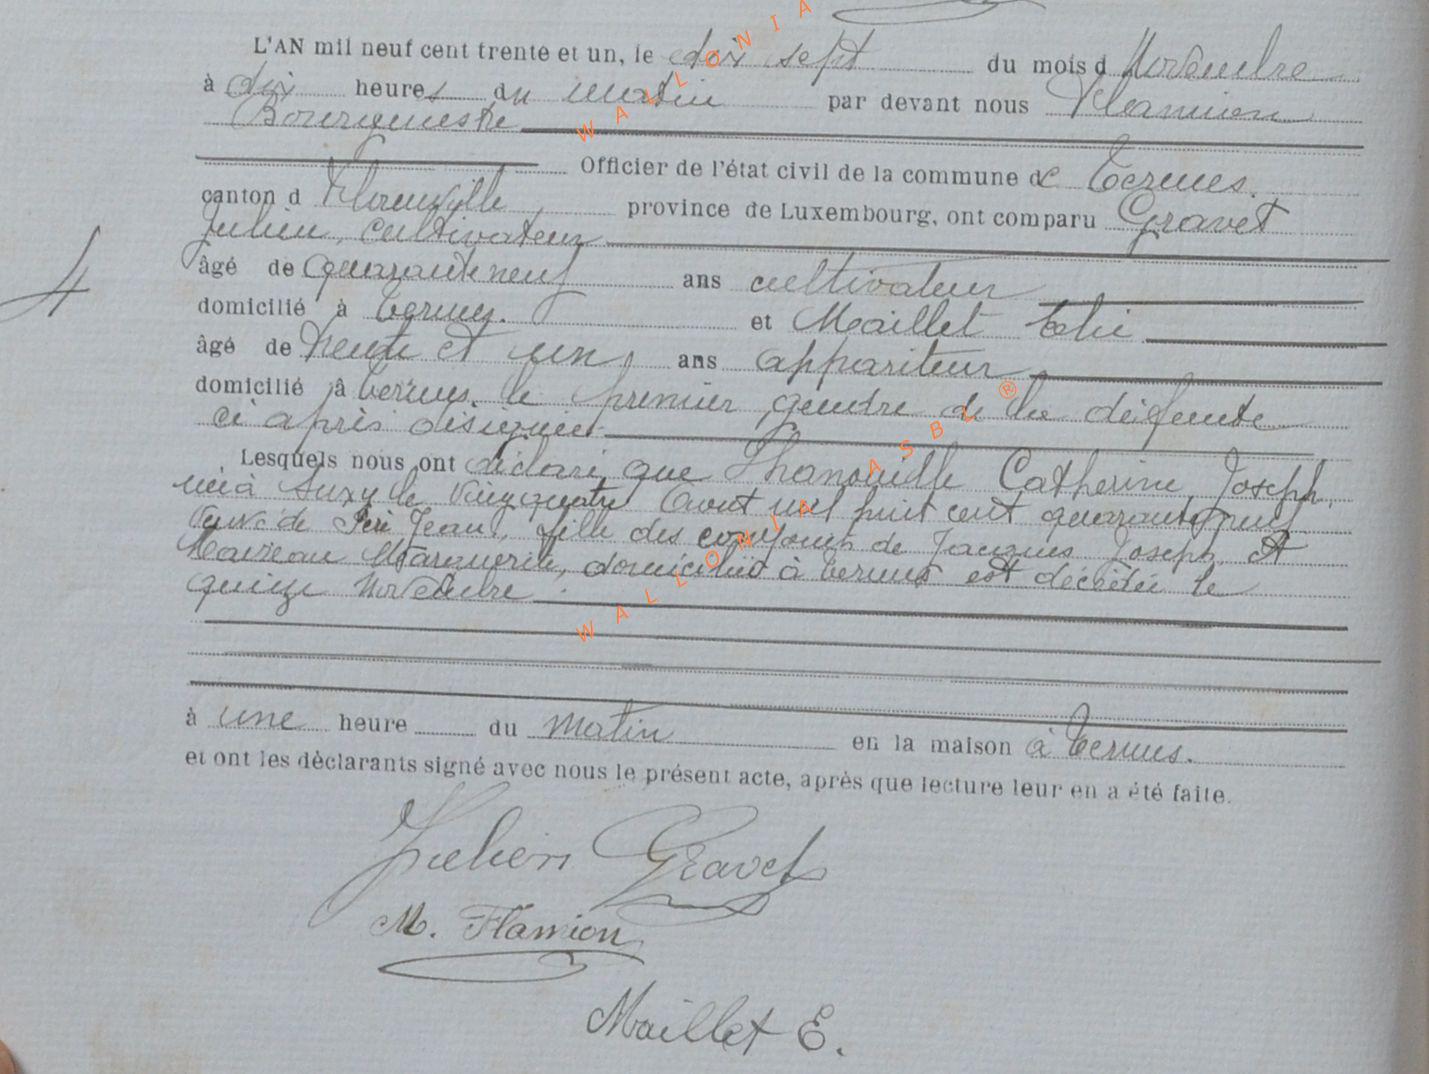 L'AN mil neuf cent trente et un, le dix sept du mois d Novembre
à dix heures du matin par devant nous Flamion
Bourgmestre
Officier de l'état civil de la commune de Termes.
canton d Florenville, province de Luxembourg, ont comparu Gravet
Julien, cultivateur
âgé de quarante neuf ans cultivateur
domicilié à Termes. et Maillet Elie
âgé de trente et un, ans appariteur
domicilié à Termes. le premier gendre de la défunte
ci après désignée
Lesquels nous ont déclaré que Thanouille Catherine, Joseph,
née à Suxy le vingquatre Aout mil huit cent quarante neuf
veuve de Jean, fille des conjoints de Jacques Joseph et
Marguerite, domiciliée à Termes est décédée le
quinze Novembre
à une heure du matin en la maison à Termes.
et ont les dèclarants signé avec nous le présent acte, après que lecture leur en a été faite.
Julien Gravet
M. Flamion
Maillet E.
4
WALLONIA ASBL ®
WALLONIA